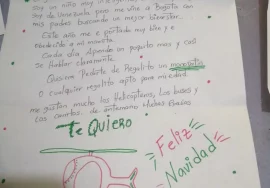 soy un niño muy
Soy de Venezuela pero me vine a Bogota con
mis padres buscando un mejor bienestar.
Este año me e portado muy bien y e
obedecido a mi mamita.
Cada dia Aprendo un poquito mas y casi
se hablar claramente.
Quiero Pedirte de Regalito un monopatin
O cualquier regalito apto para mi edad.
me gustan mucho los Helicopteros, Los buses y
Los carritos. de antemano
Te Quiero
Feliz
Navidad